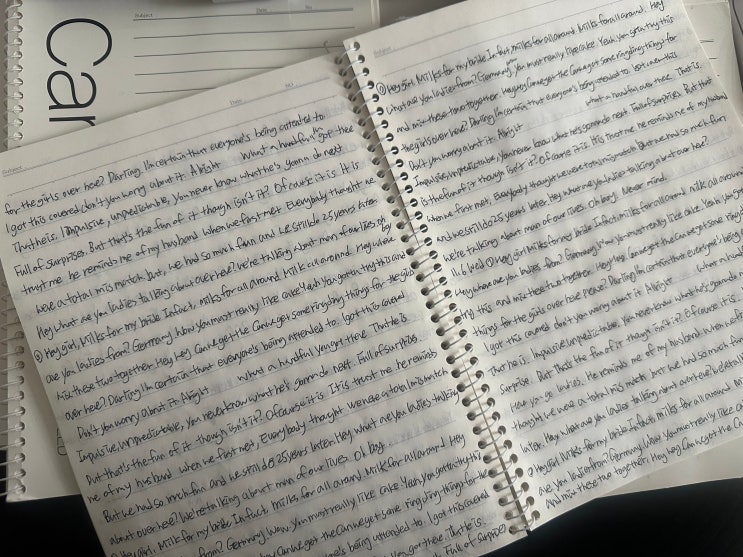 Subject :
Date
No.
Car
for the girls over here? Darling, I'm certain that everyone's being attended to
I got this covered don't you worry about it. Alright What a handful you got there
That he is. Impulsive, unpredictable, you never know what he's gonna do next
Full of surprises. But that's the fun of it though isn't it? Of course it is. It is
trust me he reminds me of my husband when we first met. Everybody thought we
were a total mismatch, but, we had so much fun and we still do 25 years later
Hey what are you ladies talking about over here? We're talking about man of our lives oh boy
Hey girl, Milks for my bride. In fact, milks for all around Milk all around. Hey where
are you ladies from? Germany Wow you must really like cake Yeah you gotta try this and
Mix these two together. Hey hey can we get the Can we get some ring ding things for the girls
over here? Darling I'm certain that everyone's being attended to. I got this covered
Don't you worry about it. Alright What a handful you got there. That he is
Impulsive, unpredictable, you never know what he's gonna do next. Full of surprise.
But that's the fun of it though isn't it? Of course it is It is trust me he reminds
me of my husband when we first met, Everybody thought we were a total mismatch
But we had so much fun and we still do 25 years later. Hey what are you ladies talking
about over here? We're talking about man of our lives. Oh boy
Hey girl, Milk for my bride In fact, milks, for all around Milk for all around Hey
from? Germany Wow, you must really like cake Yeah you gotta try this
Hey hey can we get the Can we get some ring ding things for
being attended to. I got this covered
you got there. That he is.
Full of surprise
Hey girl Milks for my bride In fact, milks for all around Milks for all around. Hey
what are you ladies from? Germany you must really like cake. Yeah you gotta try this
and mix these two together. Hey hey Can we get the Can we get some ring ding things for
the girls over here? Darling I'm certain that everyone's being attended to. I got this
Don't you worry about it. Alright What a handful over there. That is
Impulsive, unpredictable, you never know what he's gonna do next. Full of surprises. But that
is the fun of it though isn't it? Of course it is. It is Trust me he reminds me of my husband
when we first met. Everybody thought we were total mismatch But we had so much fun
and we still do 25 years later Hey what are you ladies talking about over here?
we're talking about man of our lives. Oh boy. Never mind.
Hey girl Milks for my bride. In fact milks for all around Milk all around
Hey where are you ladies from? Germany Wow you must really like cake Yeah you gotta
try this and mix these two together. Hey, Hey can we get the can we get some ring ding
things for the girls over here please? Darling I'm certain that everyone's being
got this covered don't you worry about it Alright What a handful
That he is. Impulsive unpredictable, You never know what he's gonna do
surprise. But that's the fun of it though isn't it? Of course it is.
ladies. He reminds me of my husband when we
thought we were a total mis match but we had so much fun
later. Hey what are you ladies talking about over here? We're talking
Hey girl Milks for my bride In fact milks for all around
are you ladies from? Germany Wow you must really like cake
and mix these two together. Hey hey Can we get the Can